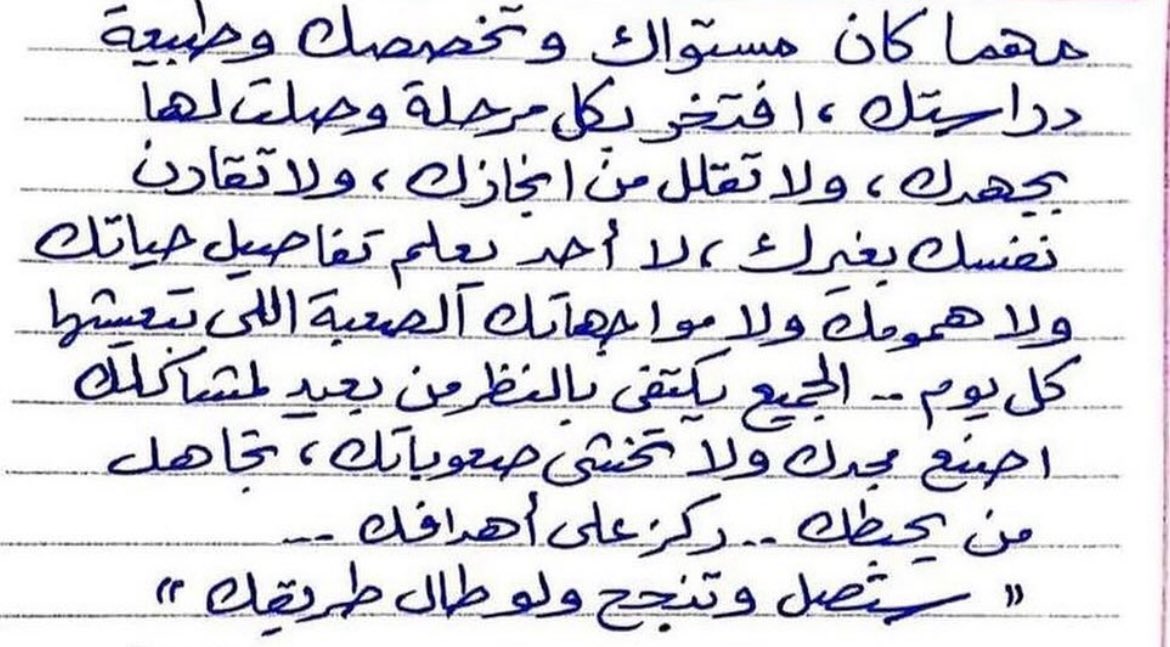 مهما كان مستواك وتخصصك وطبيعة
دراستك، افتخر بكل مرحلة وصلت لها
بجهدك، ولا تقلل من انجازك، ولا تقارن
نفسك بغيرك، لا أحد يعلم تفاصيل حياتك
ولا همومك ولا مواجهاتك الصعبة اللي تعيشها
كل يوم .. الجميع يكتفي بالنظر من بعيد لمشاكلك
اصنع مجدك ولا تخشى صعوباتك، تجاهل
من يحبطك .. ركز على أهدافك ...
"ستصل وتنجح ولو طال طريقك"